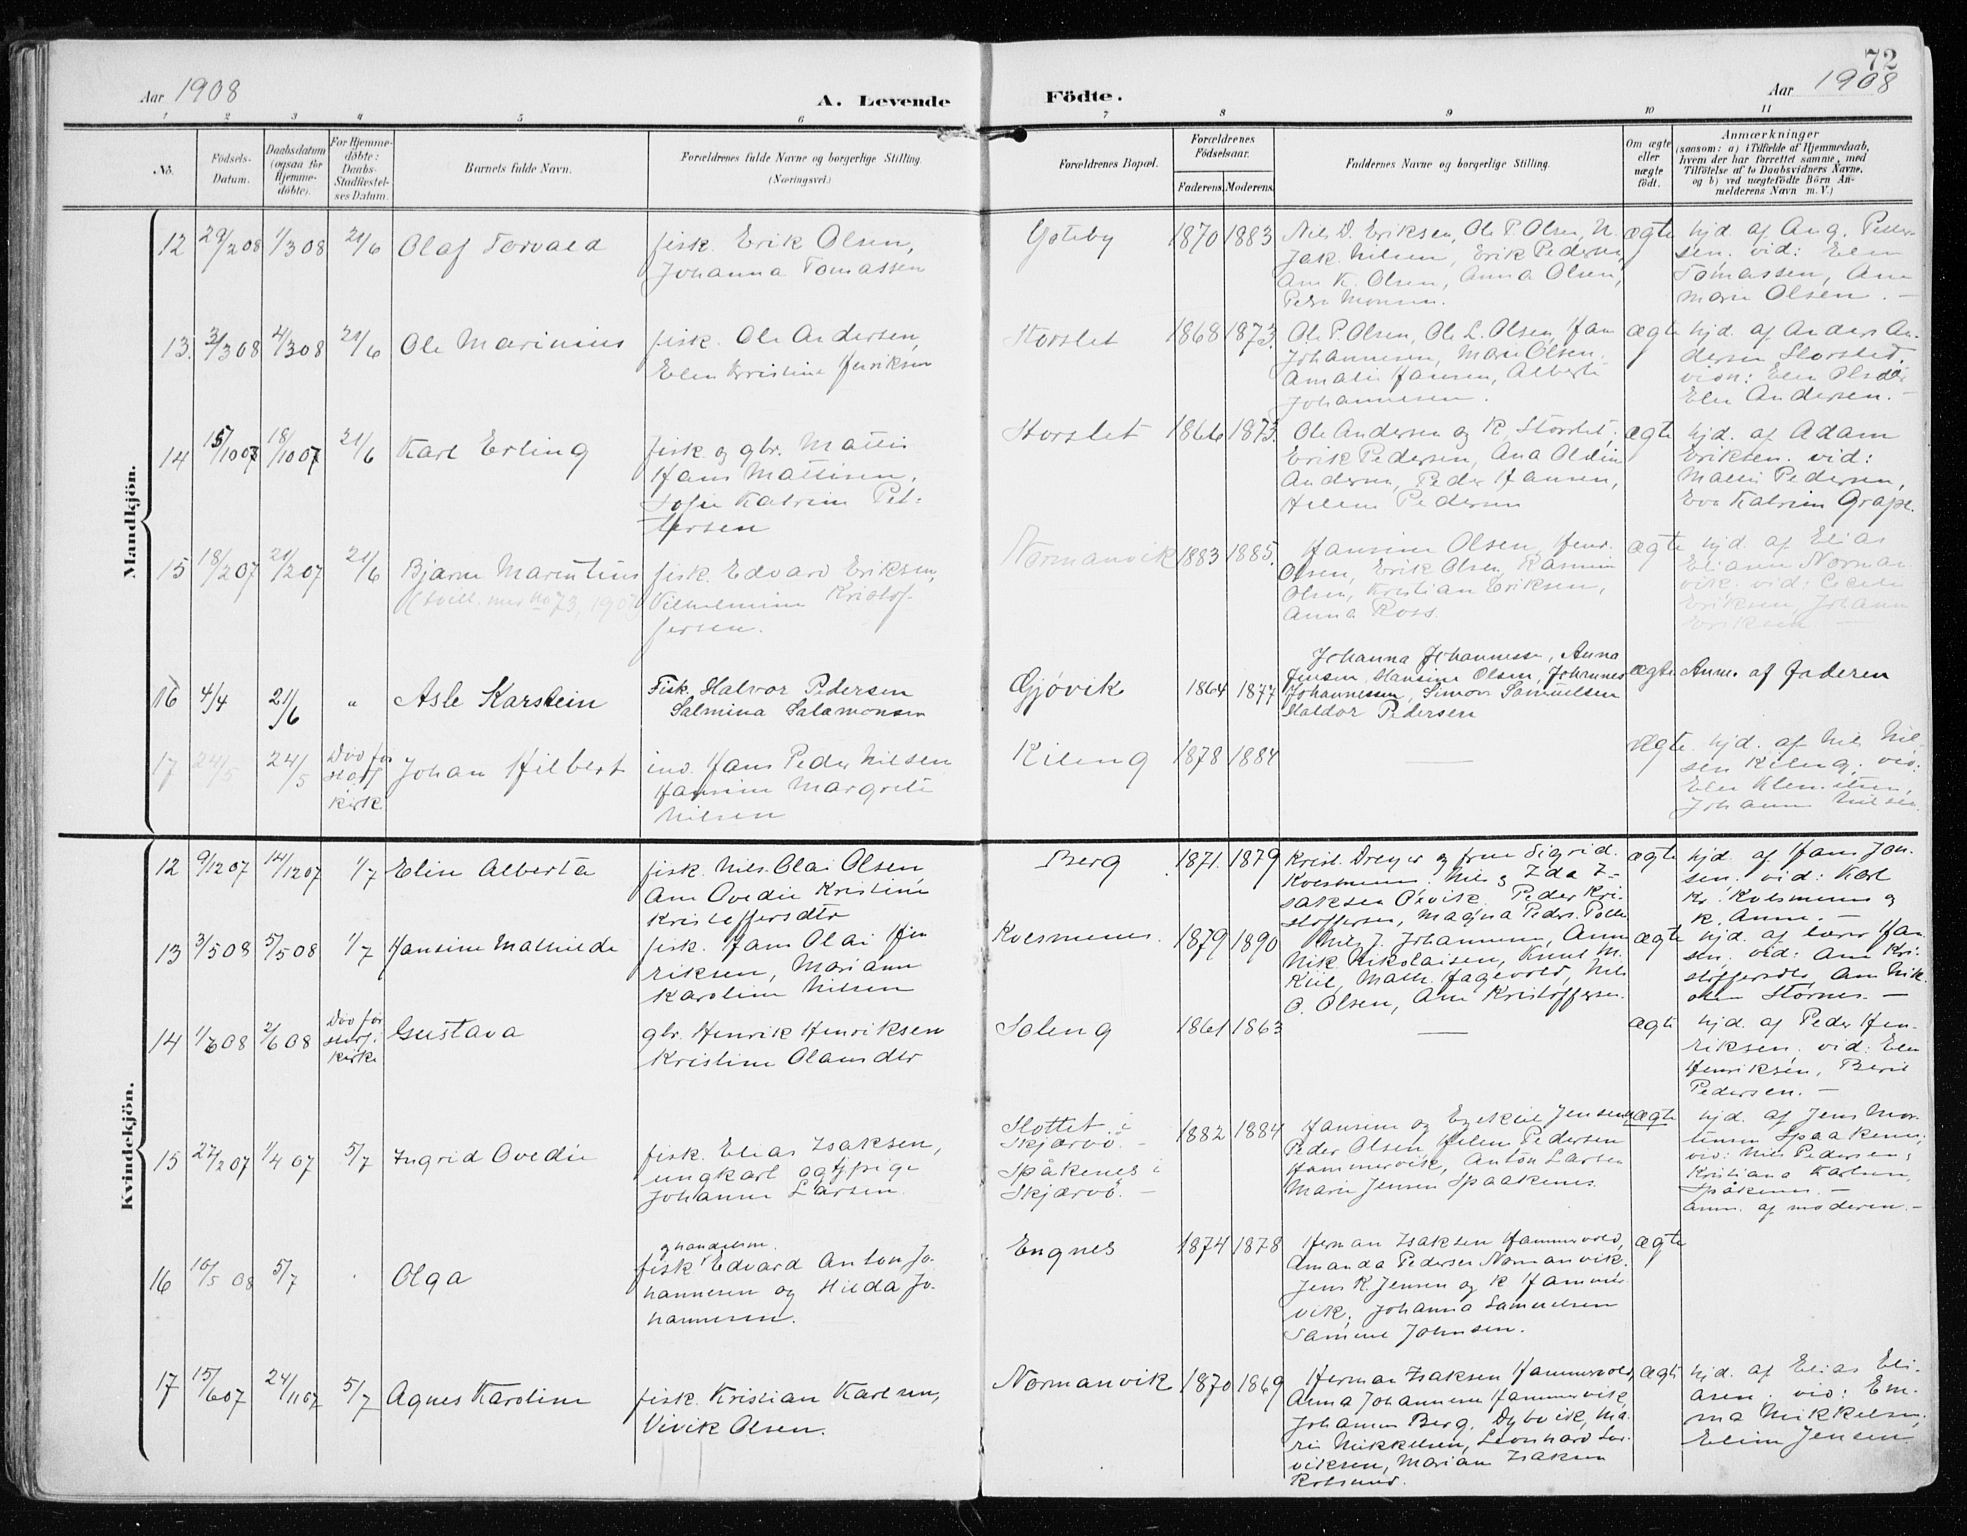 72
Aar 1908
A. Levende Födte.
Aar 1908
1 2 3 4 5 6 7 8 9 10 11
No.
Födsels-
Datum.
Daabsdatum
(ogsaa for
Hjemme-
döbte).
For Hjemme-
döbte:
Daabs-
Stadfæstel-
ses Datum.
Barnets fulde Navn.
Forældrenes fulde Navne og borgerlige Stilling.
(Næringsvei.)
Forældrenes Bopæl.
Forældrenes
Födselsaar.
Faderens. Moderens.
Faddernes Navne og borgerlige Stilling.
Om ægte
eller
uægte
födt.
Anmærkninger
(saasom: a) i Tilfælde af Hjemmedaab,
hvem der har forrettet samme, med
Tilföielse af to Daabsvidners Navne,
og b) ved uægtefödte Börn An-
melderens Navn m. V.)
Mandkjön.
12 29/2 08 1/3 08 21/6 Olaf Torvald
fisk. Erik Olsen,
Johanna Tomassen
Goteby 1870 1883
Nils D. Eriksen, Ole P. Olsen, N.
Jak. Nilsen, Erik Pedersen,
Ane K. Olsen, Anna Olsen,
Petra Monsen.
ægte
hjd. af Aug. Peder-
sen. vid: Elen
Tomassen, Ane
Marie Olsen. —
13. 3/3 08 4/3 08 21/6 Ole Marinius
fisk. Ole Andersen,
Elen Kristine Henriksen
Storslet 1868 1873.
Ole P. Olsen, Ole L. Olsen, Han
Johannesen, Marie Olsen.
Amalie Hansen, Alberte
Johannesen.
ægte
hjd. af Anders An-
dersen Storslet.
vidn: Elen Olsdtr
Elen Andersen. —
14 15/10 07 18/10 07 21/6 Karl Erling
fisk. og gbr. Mattis
Hans Mattisen,
Sofie Katrine Pet-
tersen
Storslet 1866 1873.
Ole Andersen og K. Storslet,
Erik Pedersen, Ana Oldine
Andersen, Peder Hansen,
Helene Pedersen
ægte
hjd. af Adam
Eriksen. vid:
Mattis Pedersen,
Eva Katrine Grape.
15 18/2 07 21/2 07 21/6 Bjarne Marentius
(tvill. med No 73, 190
fisk. Edvard Eriksen,
Vilhelmine Kristof-
fersen.
Normanvik 1883 1885.
Hansine Olsen, Henr.
Olsen, Erik Olsen, Rasmus
Olsen, Kristian Eriksen,
Anna Ross.
ægte
hjd. af Elias
Eliasen Norman-
vik, vid: Cecilie
Eriksen, Johan
Eriksen —
16 4/4 21/6 " Asle Karstein
Fisk. Halvor Pedersen
Salmina Salamonsen
Gjøvik 1864 1877
Johanna Johannessen, Anna
Jensen, Hansine Olsen, Johannes
Johannessen, Simon Samuelsen
Haldor Pedersen
ægte Anm. af faderen
17 24/5 24/5 Död før
stadf.
kirke
Johan Hilbert
ind. Hans Peder Nilsen
Hansine Margrete
Nilsen
Kileng 1878 1884
—
ægte
hjd. af Nils Nil-
sen Kileng; vid:
Elen Klemetsen,
Johanne Nilsen.
Kvindekjön.
12 9/12 07 14/12 07 1/7 Elin Alberta
fisk. Nils Olai Olsen,
Ane Ovedie Kristine
Kristoffersdtr
Berg 1871. 1879
Krist. Dreyer og frue Sigrid.
Kvesmenes. Nils og Ida I-
saksen Olvik. Peder Kri-
stoffersen, Magna Peders.
ægte
hjd. af Hans Jon-
sen. vid: Karl
Kr. Kvesmenes og
K. Anne. —
13 3/5 08 5/5 08 1/7 Hansine Mathilde
fisk. Hans Olai Hen
riksen, Mariann
Karoline Nilsen
Kvesmenes. 1879 1890
Nils J. Johannesen, Anne
Nik. Nikolaisen, Knut M.
Kiil, Math. Fagervold, Nils
O. Olsen, Ane Kristoffersen.
ægte
hjd. af lærer Han-
sen. vid: Ane Kri-
stoffersdtr, Ane Mik-
Stornes. —
14 1/6 08 2/6 08 Död før
stadf.
kirke
Gustava
gbr. Henrik Henriksen
Kristine Olausdtr
Soleng 1861 1863
—
ægte
hjd. af Peder Hen-
riksen, vid: Elen
Henriksen, Berit
Pedersen. —
15 27/2 07 1/4 07 5/7 Ingrid Ovedie
fisk. Elias Isaksen,
ungkarl og pige
Johanne Larsen.
Slottet i
Skjærvö. —
Spåkenes i
Skjærvö. —
1882 1884
Hansine og Esekiel Jensen
Peder Olsen, Helene Pedersen
Hammervik, Anton Larsen
Marie Jensen Spaakenes.
uægte
hjd. af Jens Mor-
tensen Spaakenes;
vid: Nils Pedersen,
Kristiana Karlsen,
Spåkenes. —
anm. af moderen. —
16 10/5 08 5/7 . Olga
og handelsm.
fisk Edvard Anton Jo-
hannesen og Hilda Jo-
hannesen.
Engnes 1874 1878
Herman Isaksen Hammervold,
Amanda Pedersen Normanvik.
Jens K. Jensen og K. Hammer-
vik, Johanna Samuelsen
Samuel Johnsen.
ægte
17 15/6 07 24/11 07 5/7 Agnes Karoline
fisk. Kristian Karlsen,
Vivik Olsen.
Normanvik 1870 1869
Herman Isaksen Hammervold,
Anna Johannesen Hammervik,
Johannes Berg, Dybvik, Ma-
rie Mikkelsen, Leonhard Lar-
Marian Isaksen
Rotsund.
ægte
hjd. af Elias Eli-
asen. vid: Em-
ma Mikkelsen,
Eline Jensen